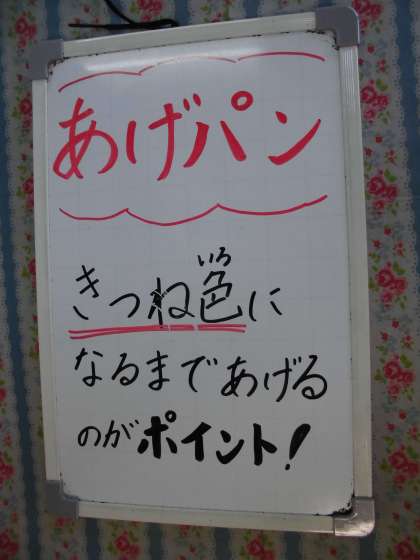 あげパン
いろ
きつね色に
なるまであげる
のがポイント!